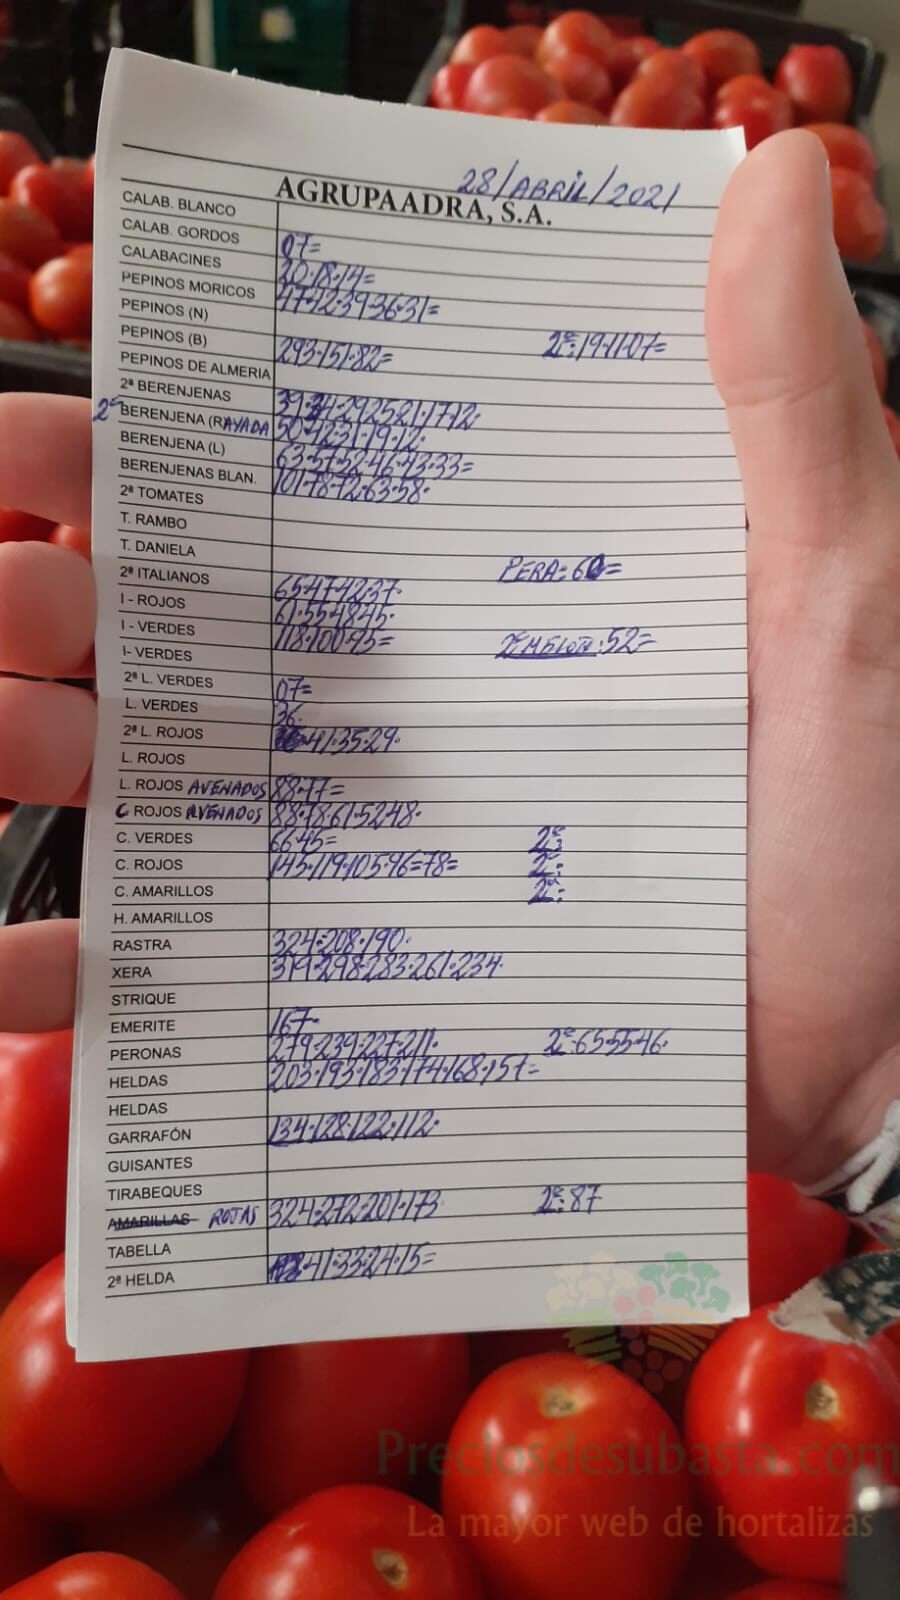 28/ABRIL/2021
AGRUPAADRA, S.A.
CALAB. BLANCO
CALAB. GORDOS 07=
CALABACINES 20·18·14=
PEPINOS MORICOS 47·42·39·36·31=
PEPINOS (N) 2ª:19·11·07=
PEPINOS (B) 293·151·82=
PEPINOS DE ALMERIA
2ª BERENJENAS 39·34·29·25·21·17·12·
2ª BERENJENA (RAYADA 50·42·31·19·12·
BERENJENA (L) 63·57·52·46·43·33=
BERENJENAS BLAN. 101·78·72·63·58·
2ª TOMATES
T. RAMBO
T. DANIELA PERA=60=
2ª ITALIANOS 65·47·42·37·
I - ROJOS 61·55·48·45·
I - VERDES 118·100·95= 52=
I- VERDES
2ª L. VERDES 07=
L. VERDES 36·
2ª L. ROJOS 41·35·29·
L. ROJOS
L. ROJOS AVENADOS 88·77=
C ROJOS AVENADOS 88·78·61·52·48·
C. VERDES 66·45= 2ª:
C. ROJOS 145·119·105·96=78= 2ª:
C. AMARILLOS 2ª:
H. AMARILLOS
RASTRA 324·208·190·
XERA 319·298·283·261·234·
STRIQUE
EMERITE 167·
PERONAS 279·239·227·211· 2ª:65·55·46·
HELDAS 203·193·183·174·168·157=
HELDAS
GARRAFÓN 134·128·122·112·
GUISANTES
TIRABEQUES
AMARILLAS ROJAS 324·272·201·173· 2ª:87
TABELLA
2ª HELDA 41·33·24·15=
Preciosdesubasta.com
La mayor web de hortalizas